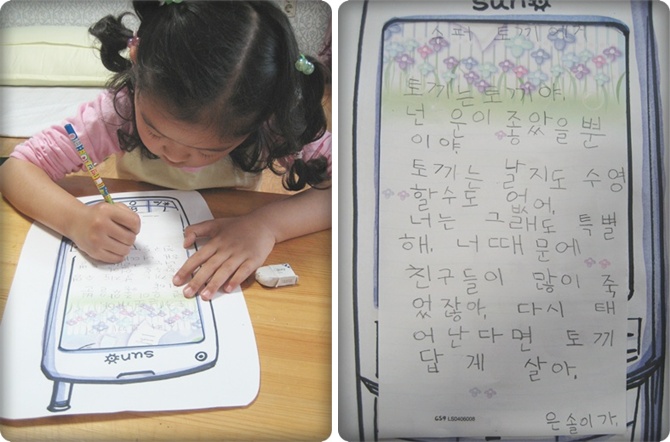 sun
sun
슈퍼 토끼에게
토끼는 토끼야.
넌 운이 좋았을 뿐
이야.
토끼는 날지도 수영
할수도 없어.
너는 그래도 특별
해. 너 때문에
친구들이 많이 죽
었잖아. 다시 태
어난다면 토끼
답게 살아.
은솔이가.